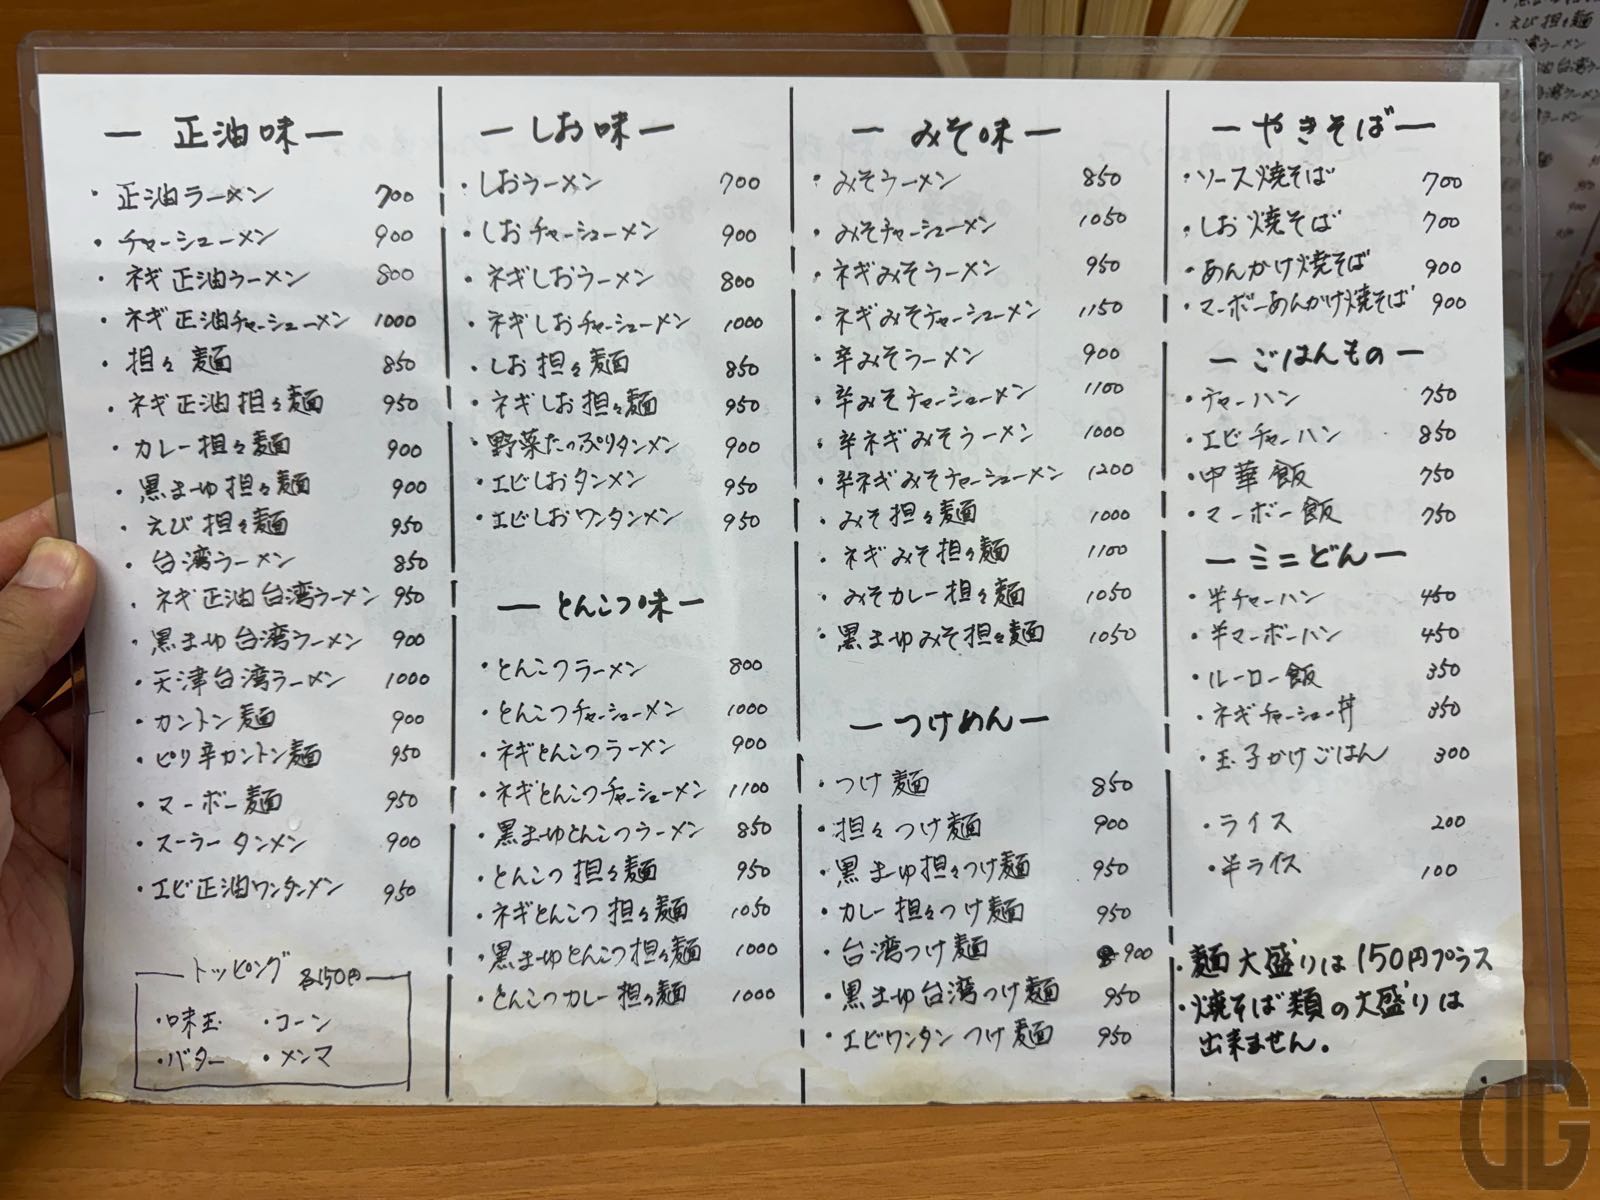 ― 正油味 ―
・正油ラーメン 700
・チャーシューメン 900
・ネギ正油ラーメン 800
・ネギ正油チャーシューメン 1000
・担々麺 850
・ネギ正油担々麺 950
・カレー担々麺 900
・黒まーゆ担々麺 900
・えび担々麺 950
・台湾ラーメン 850
・ネギ正油台湾ラーメン 950
・黒まーゆ台湾ラーメン 900
・天津台湾ラーメン 1000
・カントン麺 900
・ピリ辛カントン麺 950
・マーボー麺 950
・スーラータンメン 900
・エビ正油ワンタンメン 950
トッピング 各150円
・味玉 ・コーン
・バター ・メンマ
― しお味 ―
・しおラーメン 700
・しおチャーシューメン 900
・ネギしおラーメン 800
・ネギしおチャーシューメン 1000
・しお担々麺 850
・ネギしお担々麺 950
・野菜たっぷりタンメン 900
・エビしおタンメン 950
・エビしおワンタンメン 950
― とんこつ味 ―
・とんこつラーメン 800
・とんこつチャーシューメン 1000
・ネギとんこつラーメン 900
・ネギとんこつチャーシューメン 1100
・黒まーゆとんこつラーメン 850
・とんこつ担々麺 950
・ネギとんこつ担々麺 1050
・黒まーゆとんこつ担々麺 1000
・とんこつカレー担々麺 1000
― みそ味 ―
・みそラーメン 850
・みそチャーシューメン 1050
・ネギみそラーメン 950
・ネギみそチャーシューメン 1150
・辛みそラーメン 900
・辛みそチャーシューメン 1100
・辛ネギみそラーメン 1000
・辛ネギみそチャーシューメン 1200
・みそ担々麺 1000
・ネギみそ担々麺 1100
・みそカレー担々麺 1050
・黒まーゆみそ担々麺 1050
― つけめん ―
・つけ麺 850
・担々つけ麺 900
・黒まーゆ担々つけ麺 950
・カレー担々つけ麺 950
・台湾つけ麺 900
・黒まーゆ台湾つけ麺 950
・エビワンタンつけ麺 950
― やきそば ―
・ソース焼そば 700
・しお焼そば 700
・あんかけ焼そば 900
・マーボーあんかけ焼そば 900
― ごはんもの ―
・チャーハン 750
・エビチャーハン 850
・中華飯 750
・マーボー飯 750
― ミニどん ―
・半チャーハン 450
・半マーボーハン 450
・ルーロー飯 350
・ネギチャーシュー丼 350
・玉子かけごはん 300
・ライス 200
・半ライス 100
・麺大盛りは150円プラス
・焼そば類の大盛りは
出来ません。
えび担々麺
DG